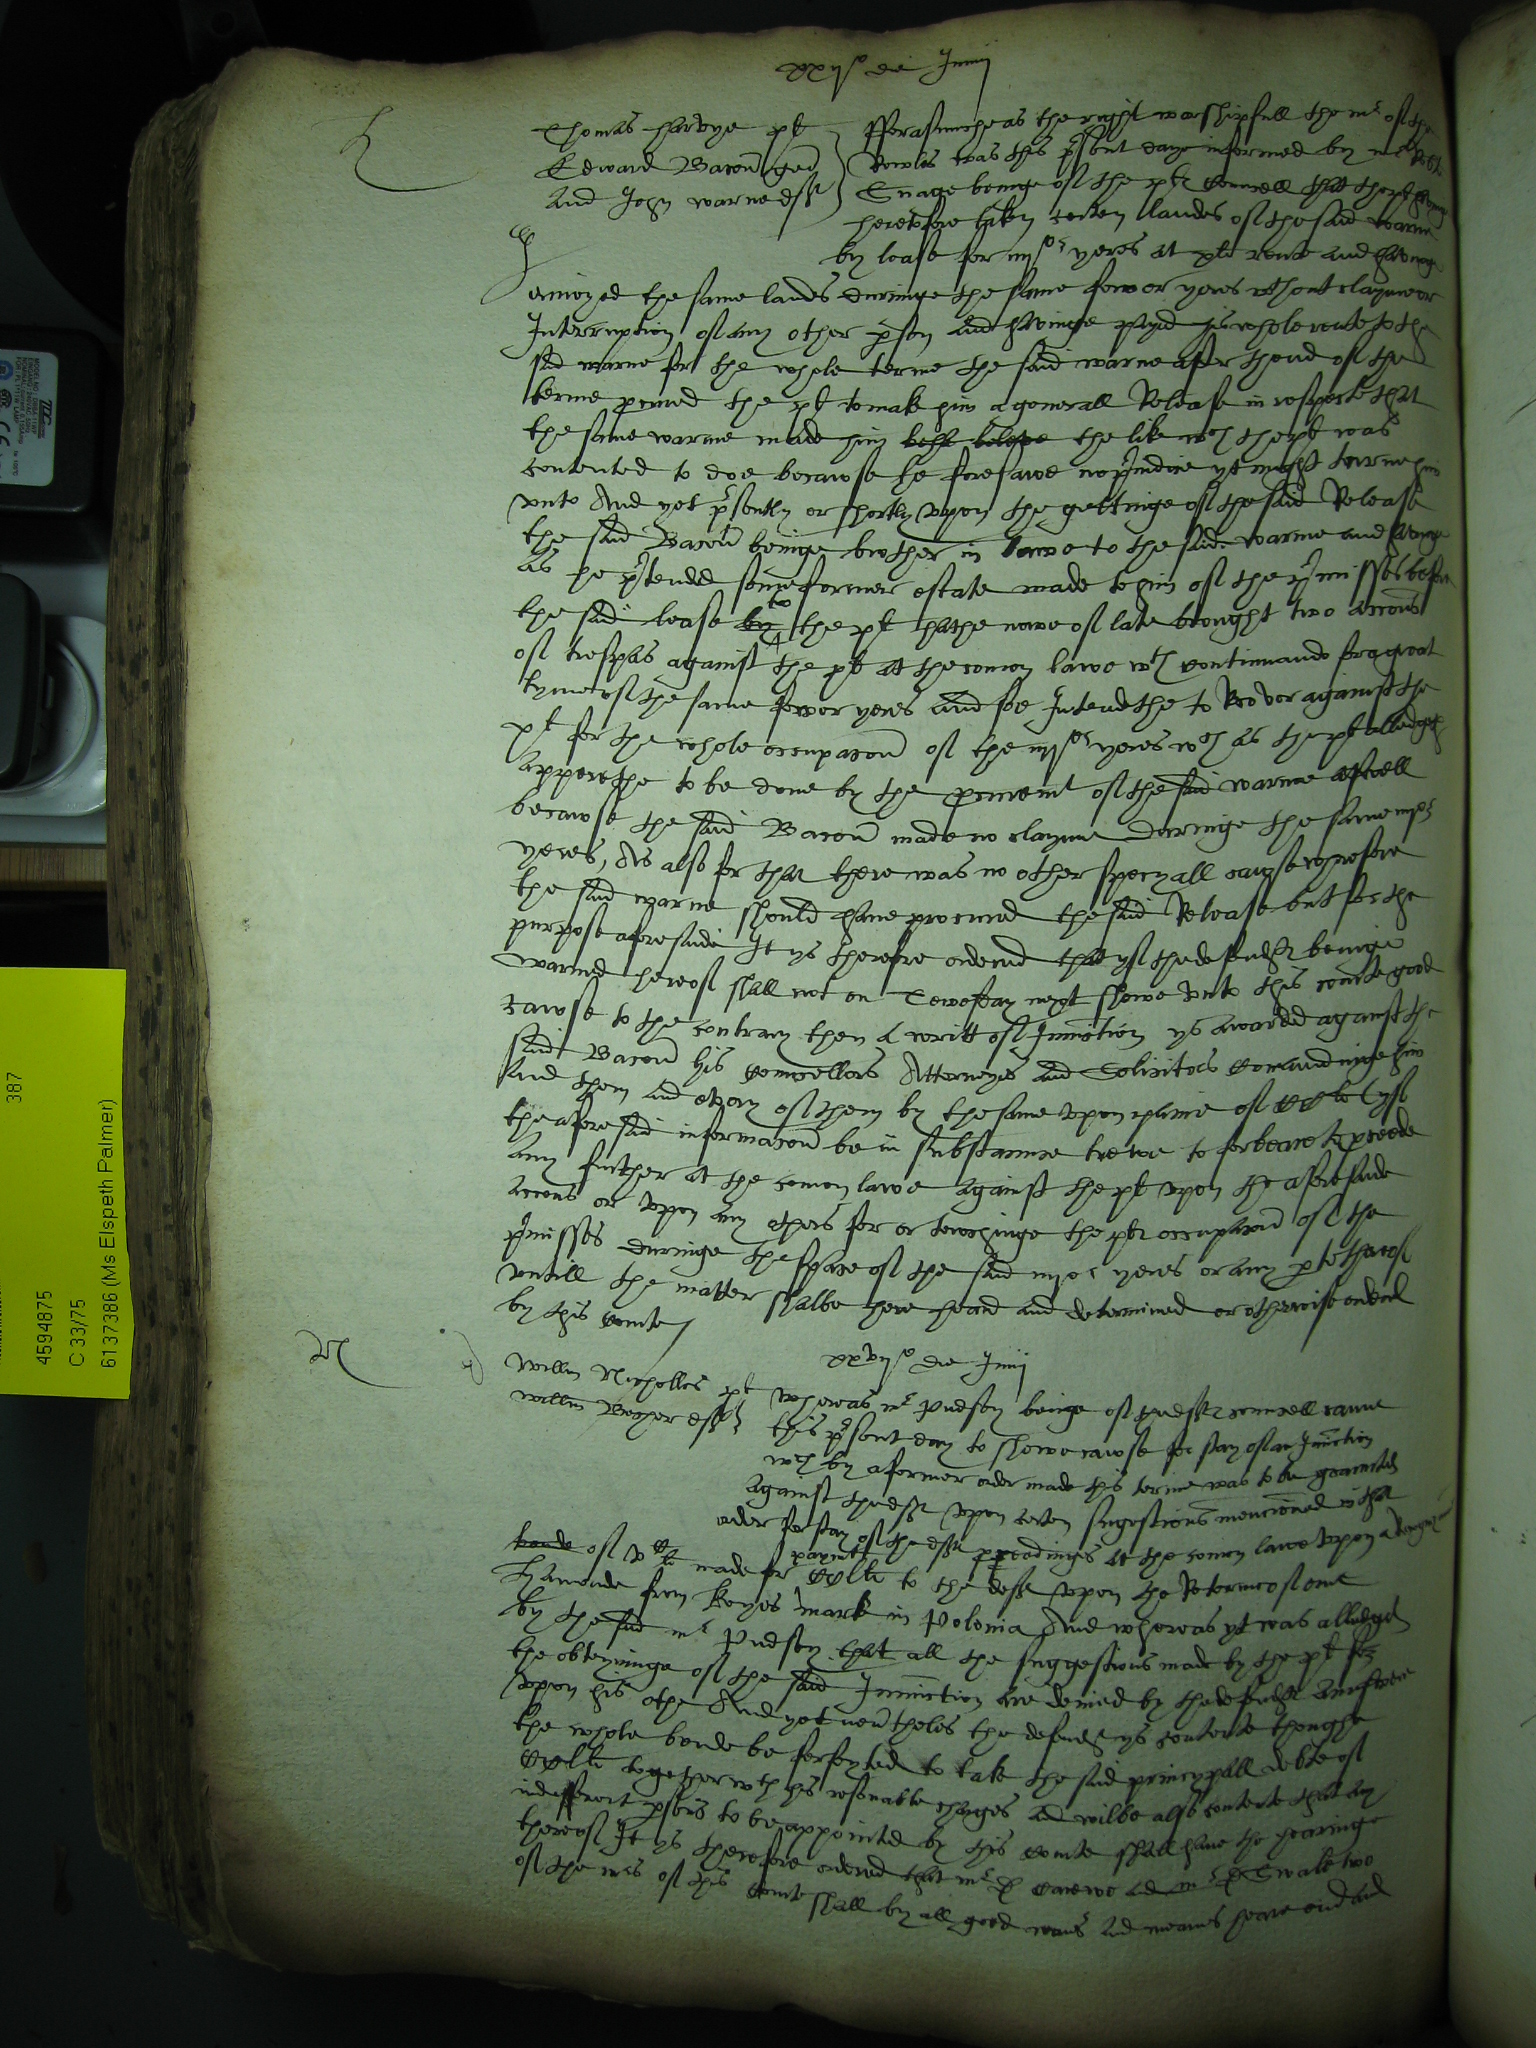 xxijo die Junij
h
Thomas Harvye plt
Edward Bacon gen
and John Warne deftes
Fforasmuche as the right worshipfull the mr of the
Rowles was this pnt daye informed by mr
Snagge beinge of the pltes councell that the plt havinge
heretofore taken certen landes of the said warne
by lease for iiijor yeres at rente and havinge
enioyed the same landes duringe the same fower yeres wthout clayme or
Interruption of any other pson and havinge payd his whole rente to the
said warne for the whole terme the said warne after thend of the
terme pcured the plt to make him a generall Release in respecte that
the same warne made him the like wch the plt was
contented to doe becawse he foresawe no piudice yt might
vnto And yet psently or shortly vpon the gettinge of the said Release
the said Bacon beinge brother in lawe to the said warne and havinge
as he ptended some former estate made to him of the pmisses before
the said lease by to the plt hathe nowe of late brought two accons
of trespas against the plt at the comon lawe wth continuando for a great
tyme of the same fower yeres and soe Intendethe to Recover against the
plt for the whole occupacon of the iiijor yeres wch as the plt alledgeth
apperethe to be done by the pcurement of the said warne aswell
becawse the said Bacon made no clayme duringe the same iiijor
yeres, As also for that there was no other specyall cawse wherefore
the said warne should have procured the said Release but for the
purpose aforesaide It ys therefore ordered that yf the defendtes beinge
warned hereof shall not on Tewesday next shewe vnto this courte good
cawse to the contrary then a writt of Iniunction ys awarded against the
said Bacon his councellors Attorneyes and Solicitors comaundinge him
and them and every of them by the same vpon payne of yf
the aforesaid informacon be in substance trewe to forbeare to pceede
any further at the comon lawe against the plt vpon the aforesaide
accons or vpon any others for or towchinge the pltes occupacon of the
pmisses duringe the space of the said iiijor yeres or any pte thereof
vntill the matter shalbe here heard and determined or otherwise ordred
by this courte
xxvijo die Junij
N
Willm Nicholles plt
Willm Becher deft
Whereas mr Hudson beinge of thedeftes councell came
this psent day to shewe cawse for stay of an Iniunction
wch by a former order made this terme was to be graunted
against thedeft vpon certen sugestions mencioned in that
order for stay of the deftes pceedinges at the comon lawe vpon a
bonde of made for payment to the deft vpon the Retorne of one
Hamonde from in Polonia And whereas yt was alledged
by the said mr Hudson that all the suggestions made by the plt for
the obteyninge of the said Iniunction are denied by the defendtes Answere
vpon his othe And yet nevtheles the defendt ys contente thoughe
the whole bonde be forfeyted to take the said principall debte of
together wth his resonable charges and wilbe also contente that any
indifferent psons to be appointed by this courte shall have the hearinge
thereof It ys therefore ordered that mr D Carewe and mr D Swale two
of the mrs of this courte shall by all good wayes and meanes heare end and

4594875
387
C 33/75
6137386 (Ms Elspeth Palmer)